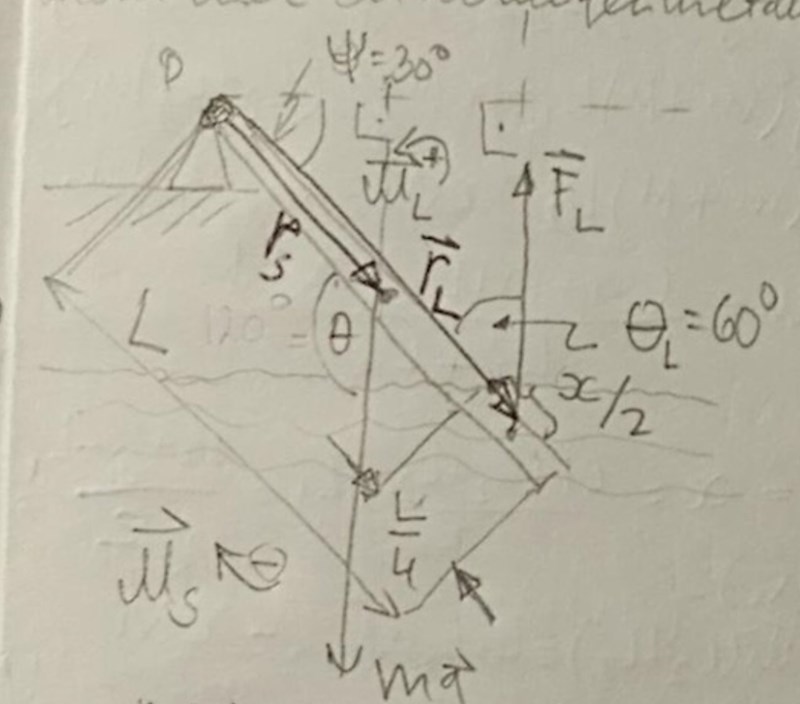 O
ψ=30°
M⃗_L (+)
F⃗_L
r_S
r⃗_L
L
120° = θ
θ_L = 60°
x/2
L/4
M⃗_S
mg⃗